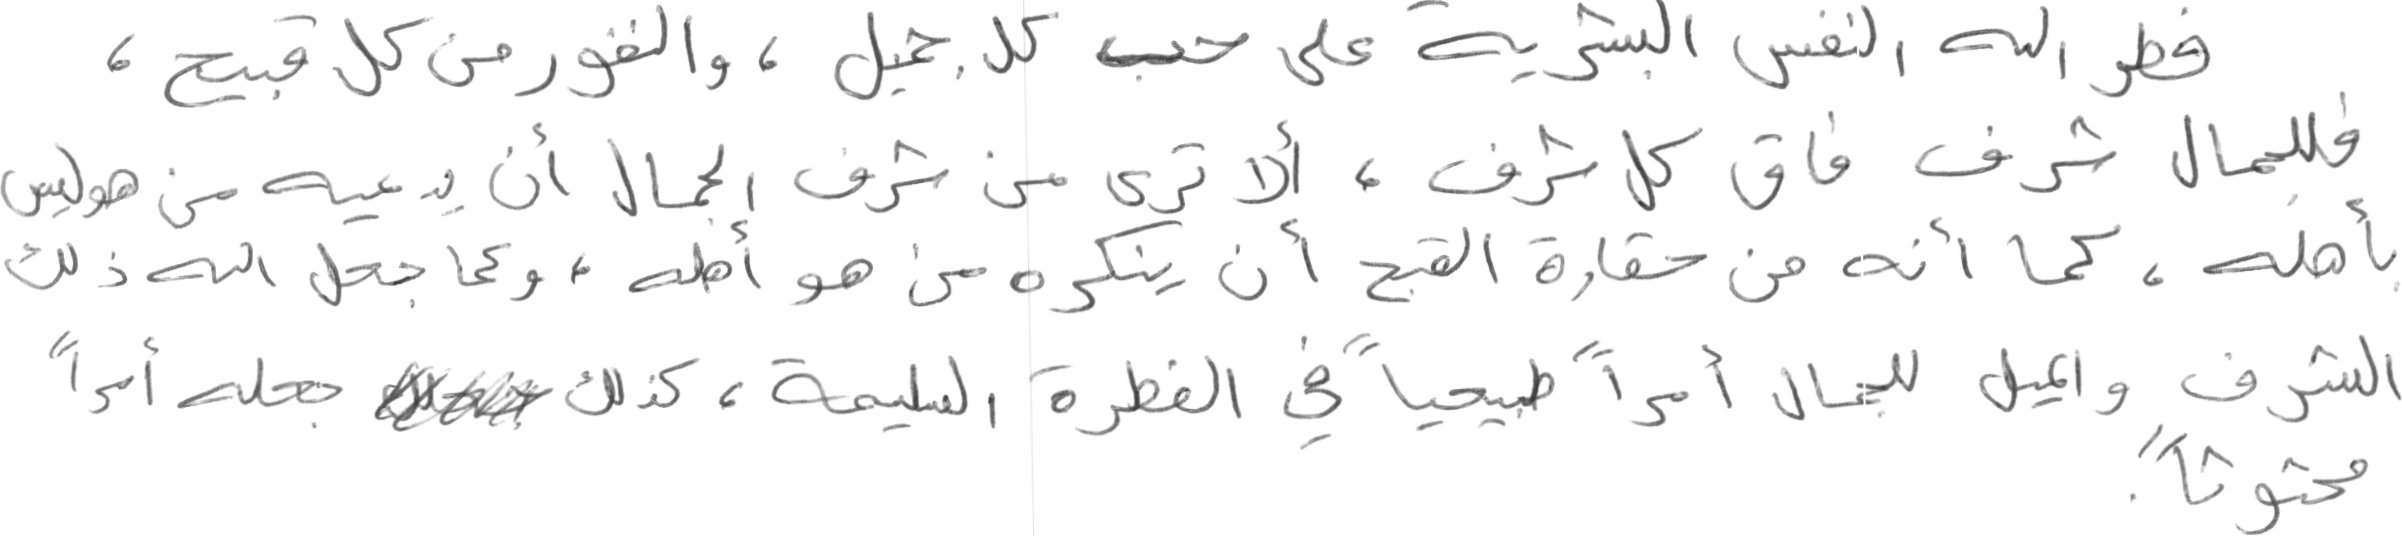 فطر الله النفس البشرية على حب كل جميل ، والنفور من كل قبيح ،
فللجمال شرف فاق كل شرف ، ألا ترى من شرف الجمال أن يدعيه من هو ليس
بأهله ، كما أنه من حقارة القبح أن ينكره من هو أهله ، وكما جعل الله ذلك
الشرف والميل للجمال أمراً طبيعياً في الفطرة السليمة ، كذلك جعله أمراً
محثوثاً .